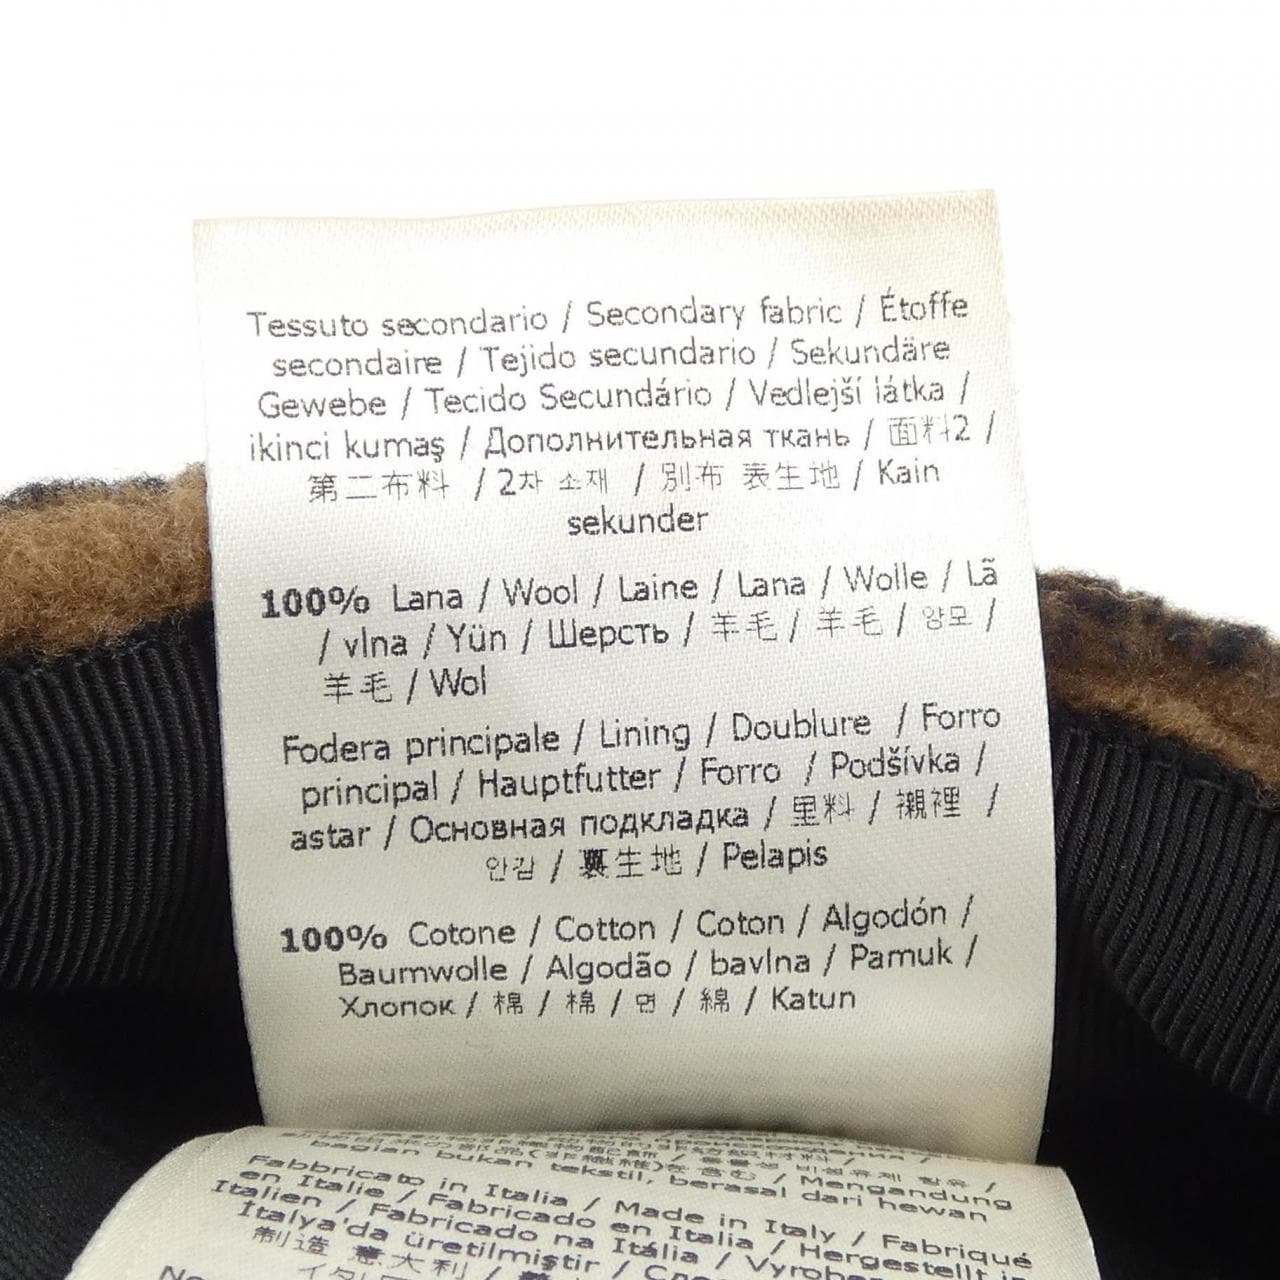 Tessuto secondario / Secondary fabric / Étoffe
secondaire / Tejido secundario / Sekundäre
Gewebe / Tecido Secundário / Vedlejší látka /
ikinci kumaş / Дополнительная ткань / 面料2 /
第二布料 / 2차 소재 / 別布 表生地 / Kain
sekunder
100% Lana / Wool / Laine / Lana / Wolle / Lã
/ vlna / Yün / Шерсть / 羊毛 / 羊毛 / 양모 /
羊毛 / Wol
Fodera principale / Lining / Doublure / Forro
principal / Hauptfutter / Forro / Podšívka /
astar / Основная подкладка / 里料 / 襯裡 /
안감 / 裏生地 / Pelapis
100% Cotone / Cotton / Coton / Algodón /
Baumwolle / Algodão / bavlna / Pamuk /
Хлопок / 棉 / 棉 / 면 / 綿 / Katun
bagian bukan tekstil, berasal dari hewan
Fabbricato in Italia / Made in Italy / Fabriqué
en Italie / Fabricado en Italia / Hergestellt in
Italien / Fabricado na Itália / Vyrobeno
İtalya'da üretilmiştir /
制造 意大利 /